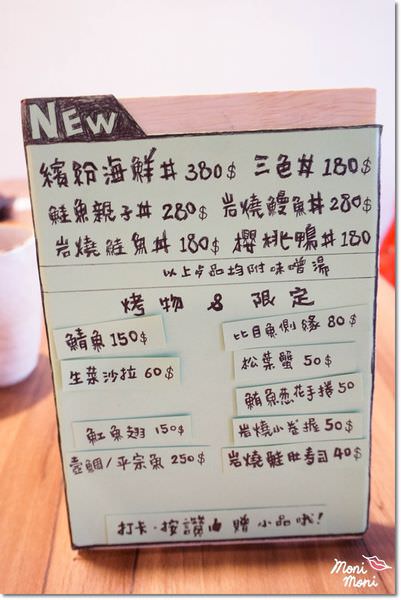 NEW
繽紛海鮮丼 380$ 三色丼 180$
鮭魚親子丼 280$ 岩燒鰻魚丼 280$
岩燒鮭魚丼 180$ 櫻桃鴨丼 180
以上丼品均附味噌湯
烤物 & 限定
鯖魚 150$
比目魚側緣 80$
生菜沙拉 60$
松葉蟹 50$
鮪魚葱花手捲 50
魟魚翅 150$
岩燒小卷握 50$
壺鯛/平宗魚 250$
岩燒鮭肚壽司 40$
打卡·按讚 贈小品哦!
Moni
Moni